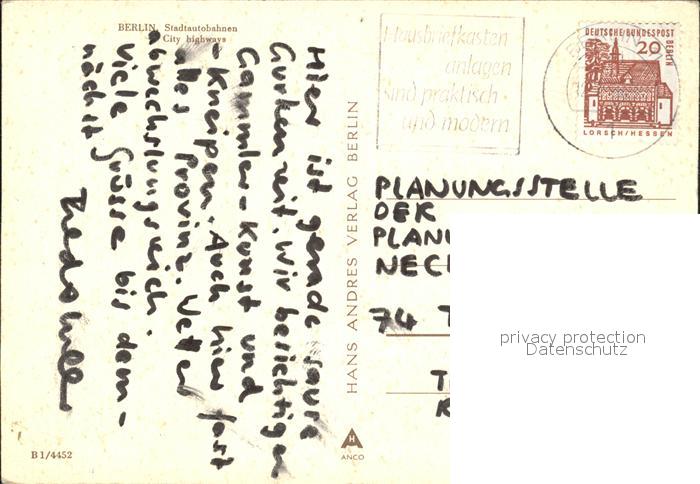 BERLIN, Stadtautobahnen
City highways
Hier ist gerade saure
Gurkenzeit. Wir besichtigen
Gammler-Kunst und
-Kneipen. Auch hier fast
alles Provinz. Wetter
abwechslungsreich.
Viele Grüsse bis dem-
nächst
HANS ANDRES VERLAG BERLIN
H A
ANCO
B 1/4452
Hausbriefkasten
anlagen
sind praktisch
und modern
DEUTSCHE BUNDESPOST
BERLIN
20
LORSCH/HESSEN
PLANUNGSSTELLE
DER
PLANU
NECK
74 T
privacy protection
Datenschutz